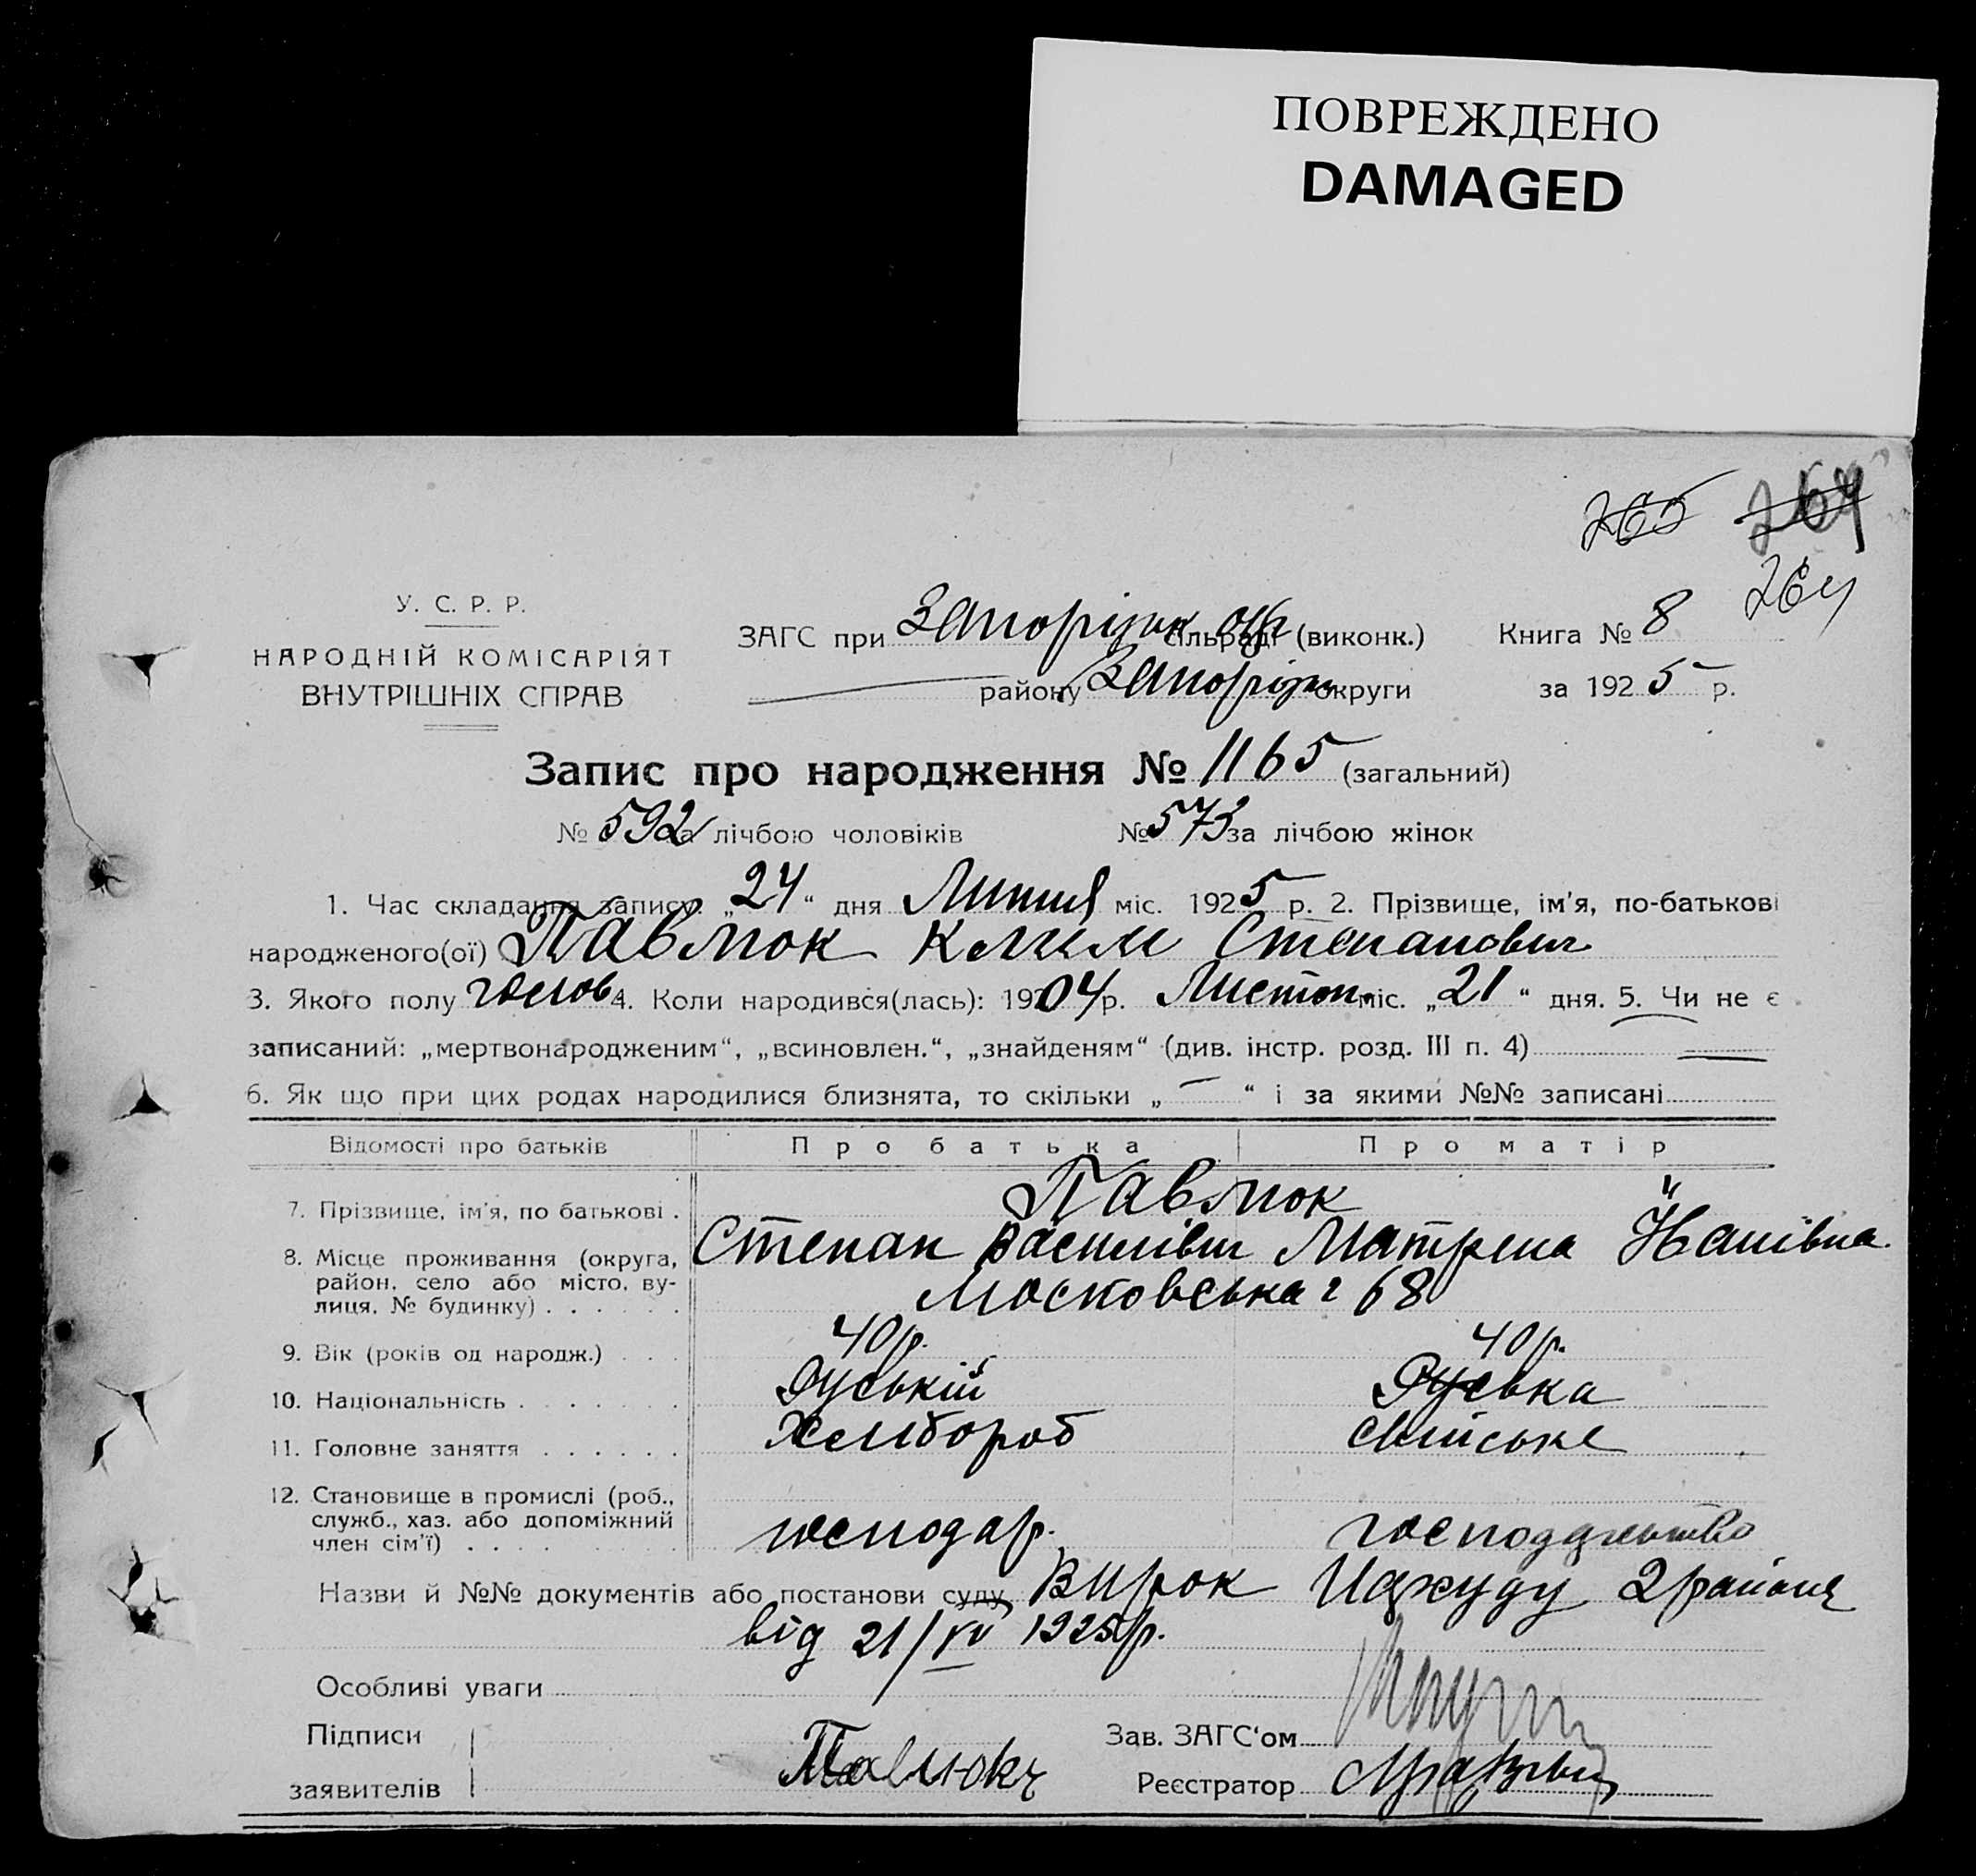 ПОВРЕЖДЕНО
DAMAGED
265 264
264
У. С. Р. Р.
НАРОДНІЙ КОМІСАРІЯТ
ВНУТРІШНІХ СПРАВ
ЗАГС при Запорізьк окр сільраді (виконк.) Книга № 8
району Запоріж округи за 1925 р.
Запис про народження № 1165 (загальний)
№ 592 за лічбою чоловіків № 573 за лічбою жінок
1. Час складання запису: „24“ дня Липня міс. 1925 р. 2. Прізвище, ім'я, по-батькові
народженого(ої) Павлюк Клим Степанович
3. Якого полу чолов. 4. Коли народився(лась): 1904 р. Листоп. міс. „21“ дня. 5. Чи не є
записаний: „мертвонародженим“, „всиновлен.“, „знайденям“ (див. інстр. розд. III п. 4)
6. Як що при цих родах народилися близнята, то скільки „—“ і за якими №№ записані
Відомості про батьків Про батька Про матір
7. Прізвище, ім'я, по батькові . Павлюк
Степан Васильвич Матрена Іванівна
8. Місце проживання (округа, район, село або місто, вулиця, № будинку) . . . . . . Московська 68
9. Вік (років од народж.) . . . 40 р. 40 р.
10. Національність . . . . . . . Руській Руська
11. Головне заняття . . . . . . Хлибороб сільське
12. Становище в промислі (роб., служб., хаз. або допоміжний член сім'ї) . . . . господар. господарьство
Назви й №№ документів або постанови суду Вирок Нарсуду 2 района
від 21/IV 1925 р.
Особливі уваги
Підписи Зав. ЗАГС'ом
заявителів Павлюк Реєстратор